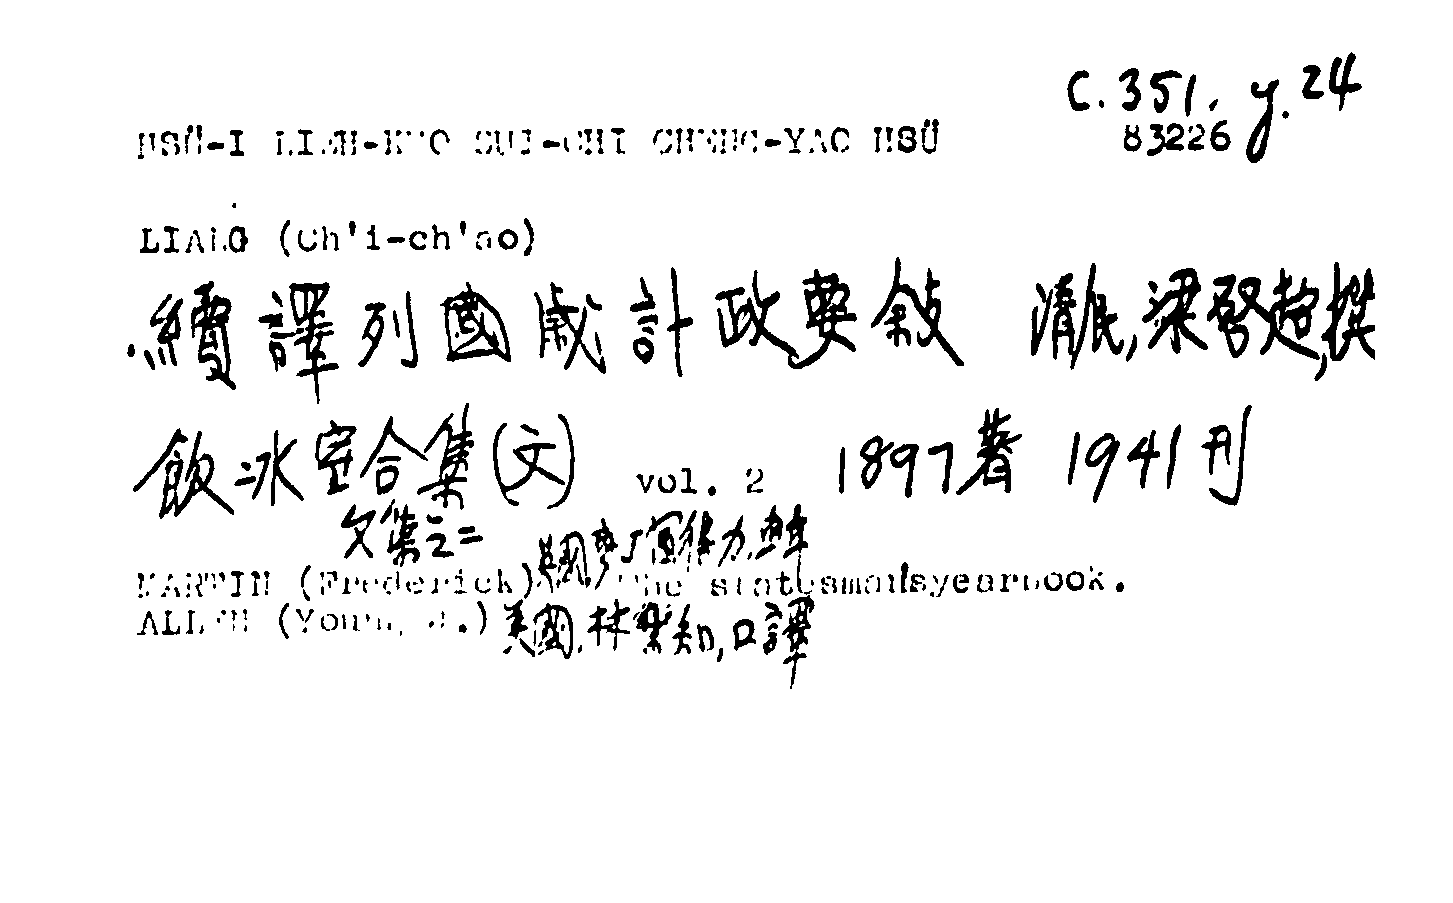 C.351.y.24
83226
HSÜ-I LIEH-KUO SUI-CHI CHENG-YAO HSÜ
LIANG (Ch'i-ch'ao)
續譯列國歲計政要敘 清民,梁啓超,撰
飲冰室合集(文) vol. 2 1897著 1941刊
文集之二
英國,麥丁富得力,輯
MARTIN (Frederick) The statesman's yearbook.
ALLEN (Young J.) 美國,林樂知,口譯